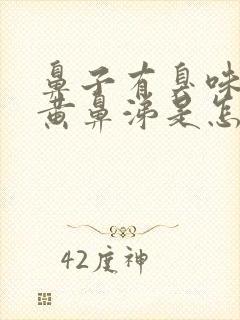 鼻子有臭味
黄鼻涕是怎
42度神